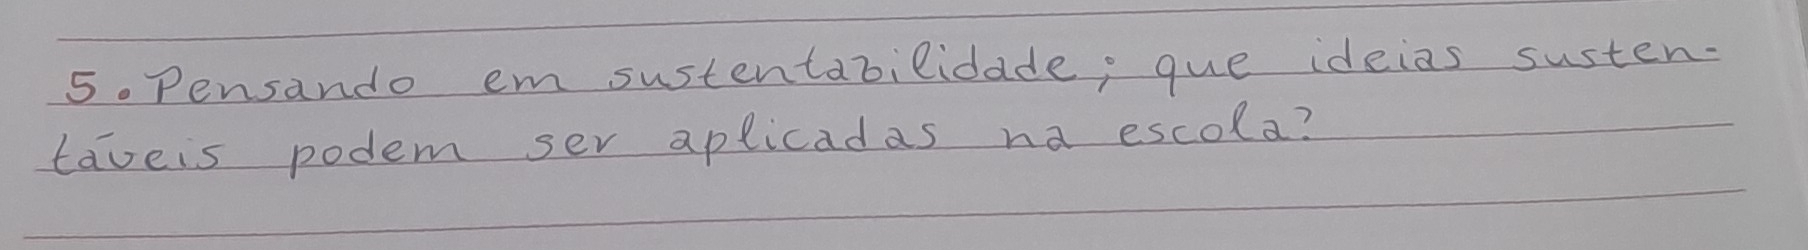 5. Pensando em sustentabilidade; que ideias susten-
táveis podem ser aplicadas na escola?